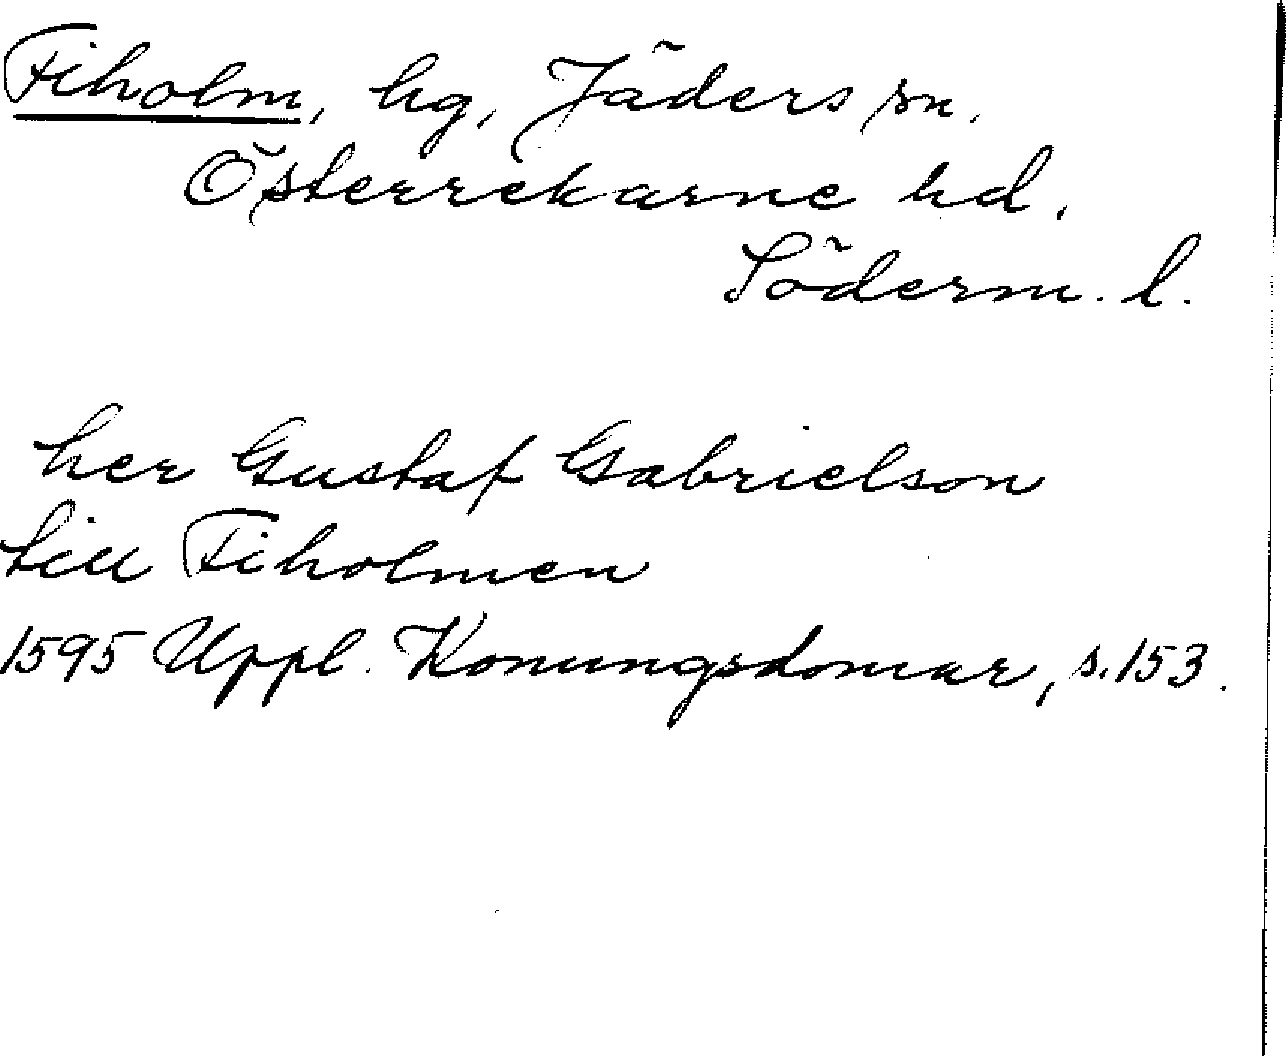 Fiholm, hg, Jäders sn.
Österrekarne hd.
Söderm. l.
her Gustaf Gabrielson
till Fiholmen
1595 Uppl. Konungsdomar, s. 153.